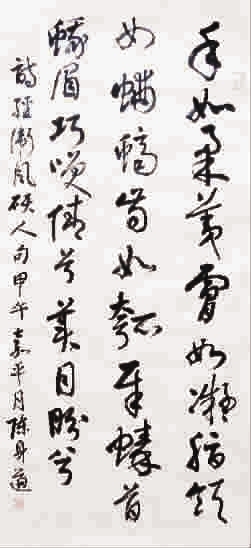 手如柔荑膚如凝脂領
如蝤蠐齒如瓠犀螓首
蛾眉巧咲倩兮美目盼兮
詩經衛風碩人句甲午嘉平月陳